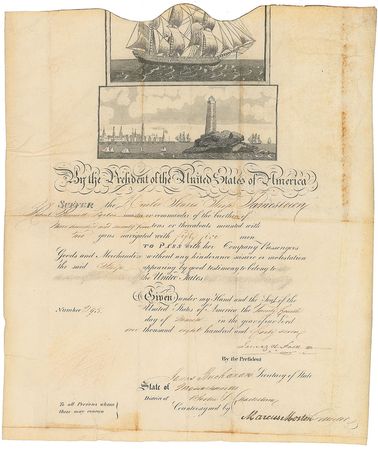 By the President of the United States of America
SUFFER the United States Ship Jamestown
master or commander of the burthen of
tons or thereabouts mounted with
guns navigated with men
TO PASS with her Company Passengers
Goods and Merchandize without any hinderance seisure or molestation
the said Ship appearing by good testimony to belong to
the United States
Given under my Hand and the Seal of the
Number United States of America the
day of March in the year of our Lord
one thousand eight hundred and forty seven
James K. Polk
By the President
James Buchanan Secretary of State
State of Massachusetts
District of Charlestown
Countersigned by
Marcus Morton
To all Persons whom
these may concern